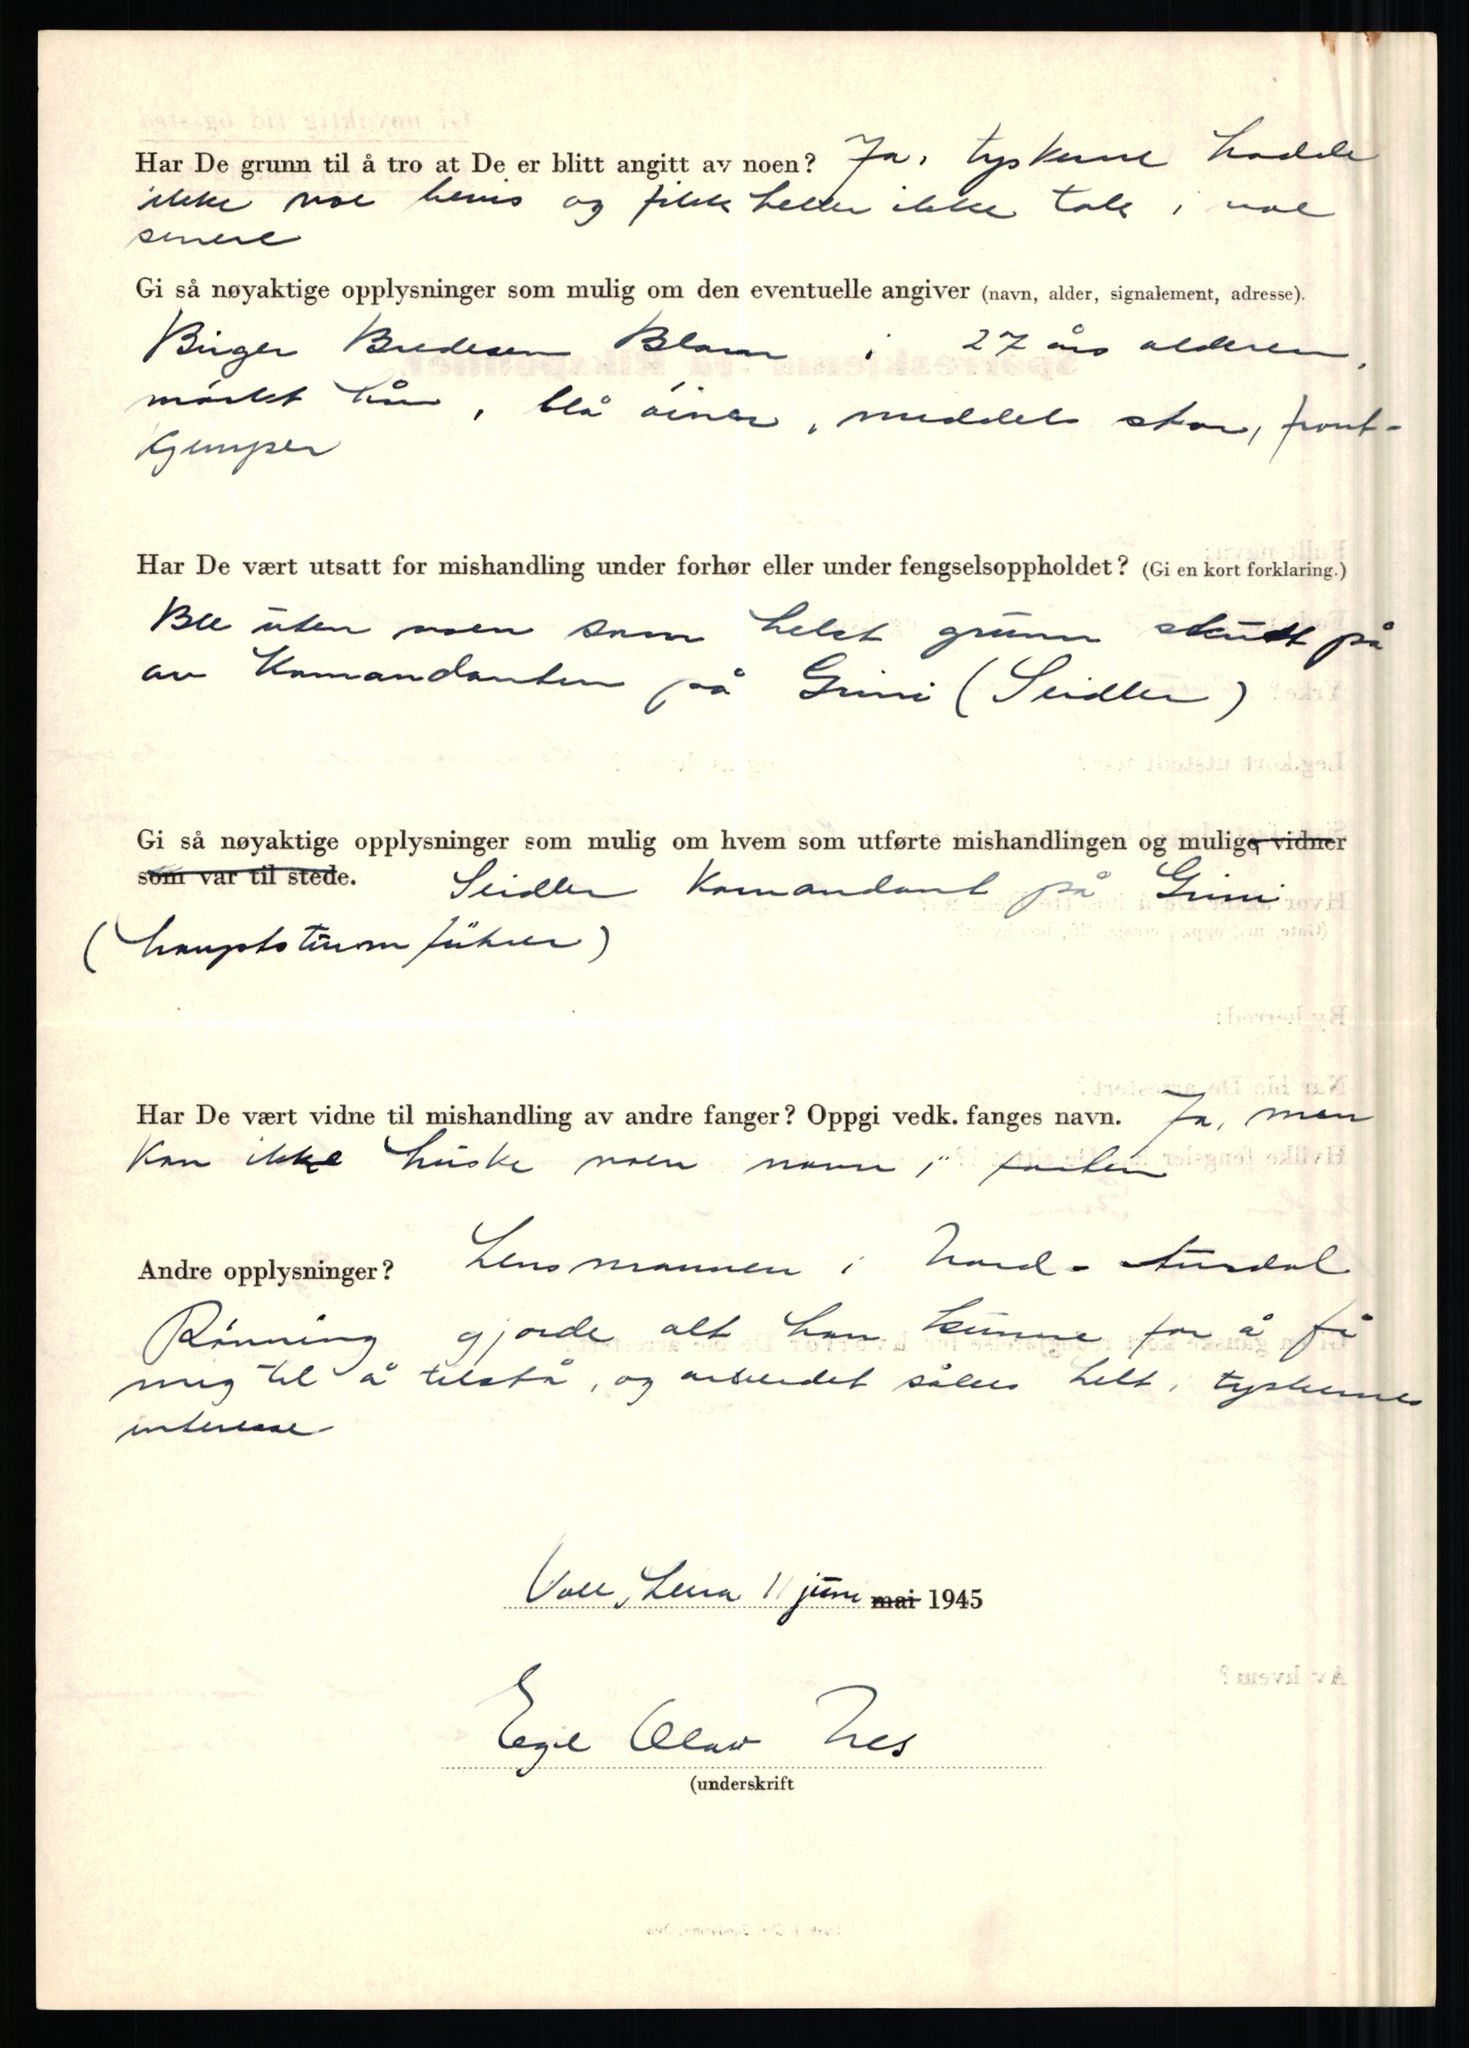 Har De grunn til å tro at De er blitt angitt av noen? Ja, tyskerne hadde
ikke noe bevis og fikk heller ikke tak i noe
senere
Gi så nøyaktige opplysninger som mulig om den eventuelle angiver (navn, alder, signalement, adresse).
Birger Bredesen Blom i 27 års alderen,
mörket hår, blå öiner, middels stor, front-
kjemper
Har De vært utsatt for mishandling under forhør eller under fengselsoppholdet? (Gi en kort forklaring.)
Ble uten noen som helst grunn skutt på
av Komandanten på Grini (Seidler)
Gi så nøyaktige opplysninger som mulig om hvem som utførte mishandlingen og mulige vidner
som var til stede. Seidler Komandant på Grini
(hauptsturmführer)
Har De vært vidne til mishandling av andre fanger? Oppgi vedk. fanges navn. Ja, men
kan ikke huske noen navn i farten
Andre opplysninger? Lensmannen i Nord-Aurdal
Rönning gjorde alt han kunne for å få
mig til å tilstå, og arbeidet såles helt i tyskernes
interesse
Leira 11 juni mai 1945
Egil Olav Nes
(underskrift